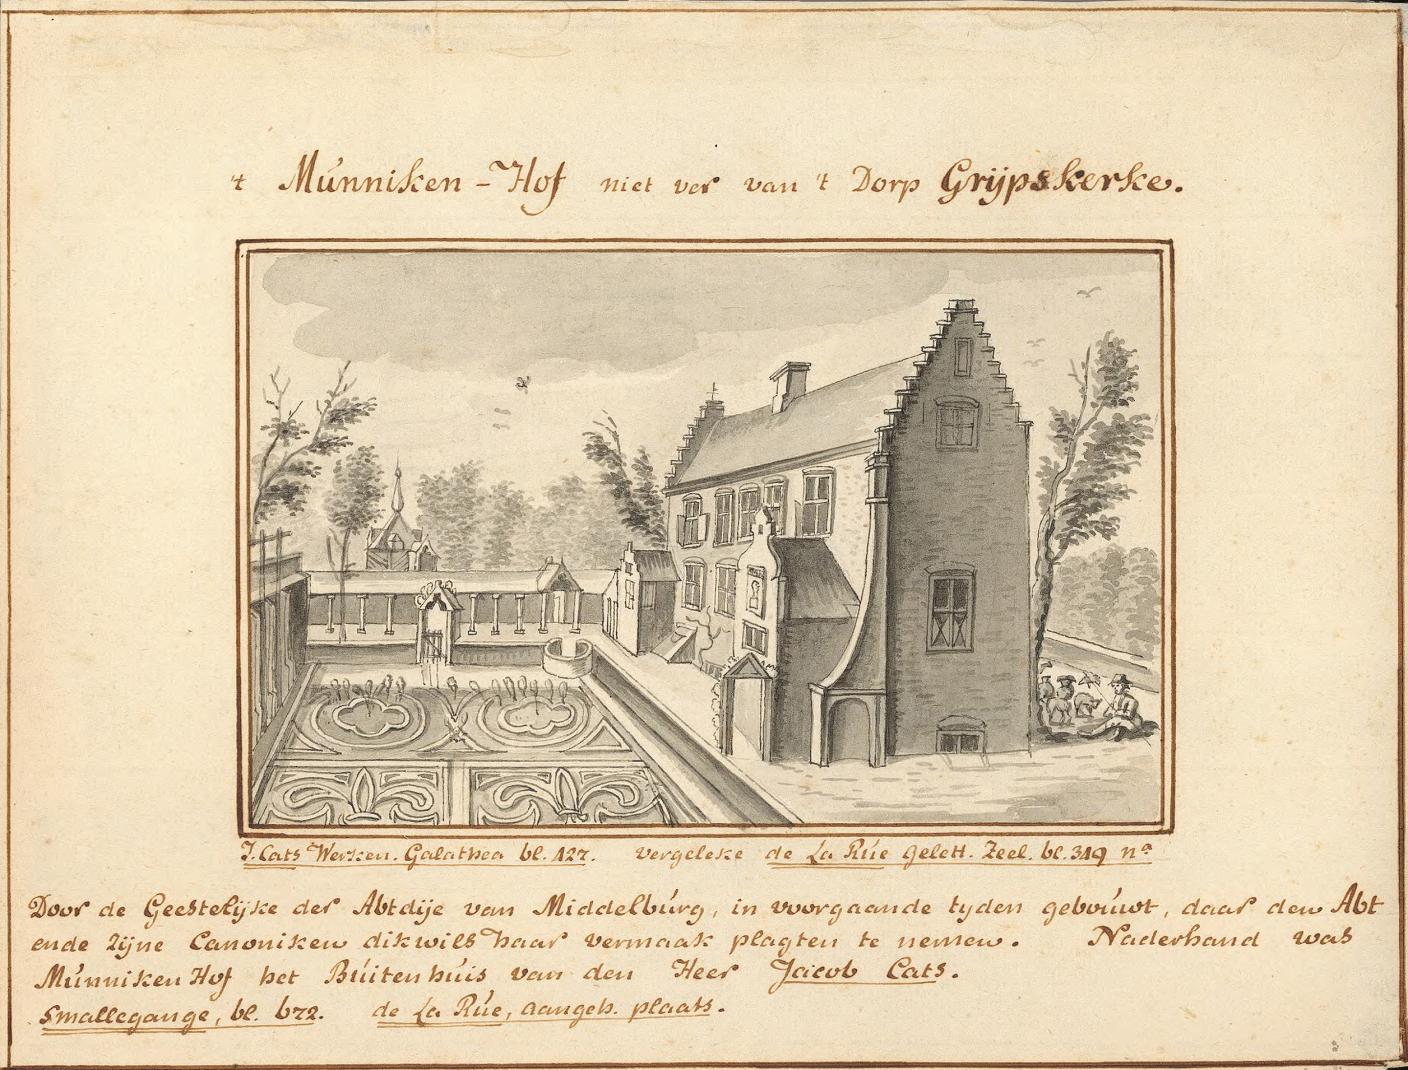 't Múnniken-Hof niet ver van 't Dorp Grijpskerke.
J. Cats Werken. Galathea bl. 127. vergeleke de La Rúe gelett. Zeel. bl. 319 nᵃ
Door de Geestelijke der Abtdije van Middelbúrg, in voorgaande tyden gebouwt, daar den Abt
ende zijne Canoniken dikwils haar vermaak plagten te nemen. Naderhand was
Múnniken Hof het Búitenhúis van den Heer Jacob Cats.
Smallegange, bl. 672. de La Rúe, aangeh. plaats.